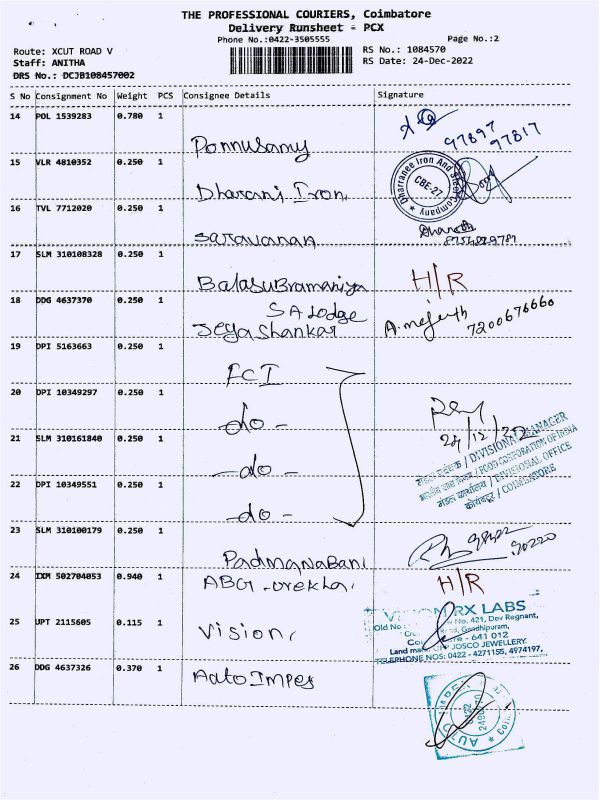 THE PROFESSIONAL COURIERS, Coimbatore
Delivery Runsheet - PCX
Phone No.:0422-3505555
Page No.:2
Route: XCUT ROAD V
RS No.: 1084570
Staff: ANITHA
RS Date: 24-Dec-2022
DRS No.: DCJB108457002
S No Consignment No Weight PCS Consignee Details Signature
14 POL 1539283 0.780 1
97897
97817
Ponnusamy
15 VLR 4810352 0.250 1
Dharranee Iron And Steel Company
CBE-27
Dharani Iron,
16 TVL 7712020 0.250 1
Saravanan
17 SLM 310108328 0.250 1
BalasuBramaniya H/R
18 DDG 4637370 0.250 1
SA Lodge
Jeya Shankar
7200676660
19 DPI 5163663 0.250 1
FCI
20 DPI 10349297 0.250 1
-do-
24/12/22
21 SLM 310161840 0.250 1
मंडल प्रबंधक / DIVISIONAL MANAGER
भारतीय खाद्य निगम / FOOD CORPORATION OF INDIA
मंडल कार्यालय / DIVISIONAL OFFICE
कोयंबटूर / COIMBATORE
-do-
22 DPI 10349551 0.250 1
-do-
23 SLM 310100179 0.250 1
PadmanaBani
24 IXM 502704053 0.940 1
H/R
25 UPT 2115605 0.115 1
Vision,
RX LABS
Old No
No. 421, Dev Regnant,
Gandhipuram,
- 641 012
JOSCO JEWELLERY.
TELEPHONE NOS: 0422 - 4271155, 4974197,
26 DDG 4637326 0.370 1
Aato Impex